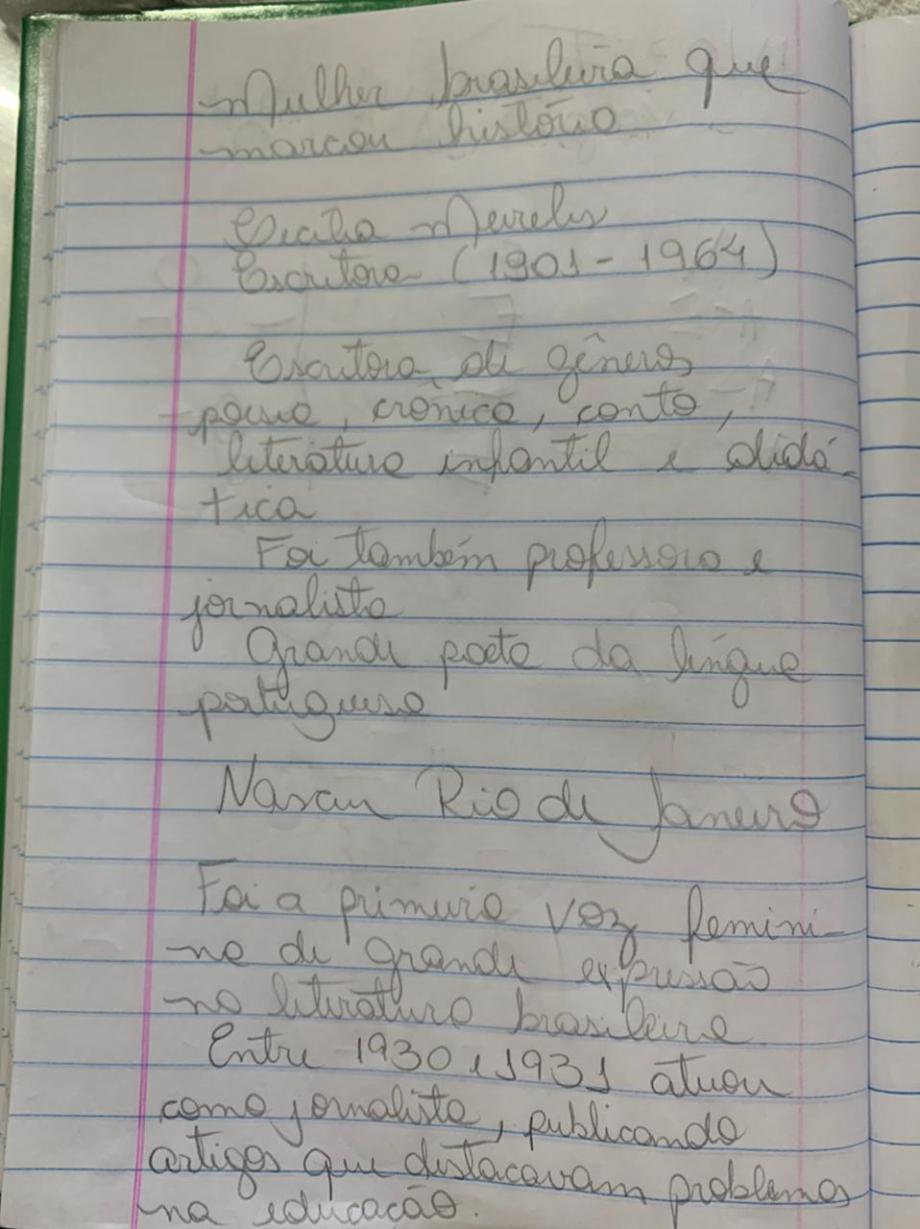 Mulher brasileira que
marcou história
Cecília Meireles
Escritora (1901-1964)
Escritora de gêneros
poesia, crônica, conto,
literatura infantil e didá-
tica
Foi também professora e
jornalista
Grande poeta da língua
portuguesa
Nasceu Rio de Janeiro
Foi a primeira voz femini-
na de grande expressão
na literatura brasileira.
Entre 1930 e 1931 atuou
como jornalista, publicando
artigos que destacavam problemas
na educação.